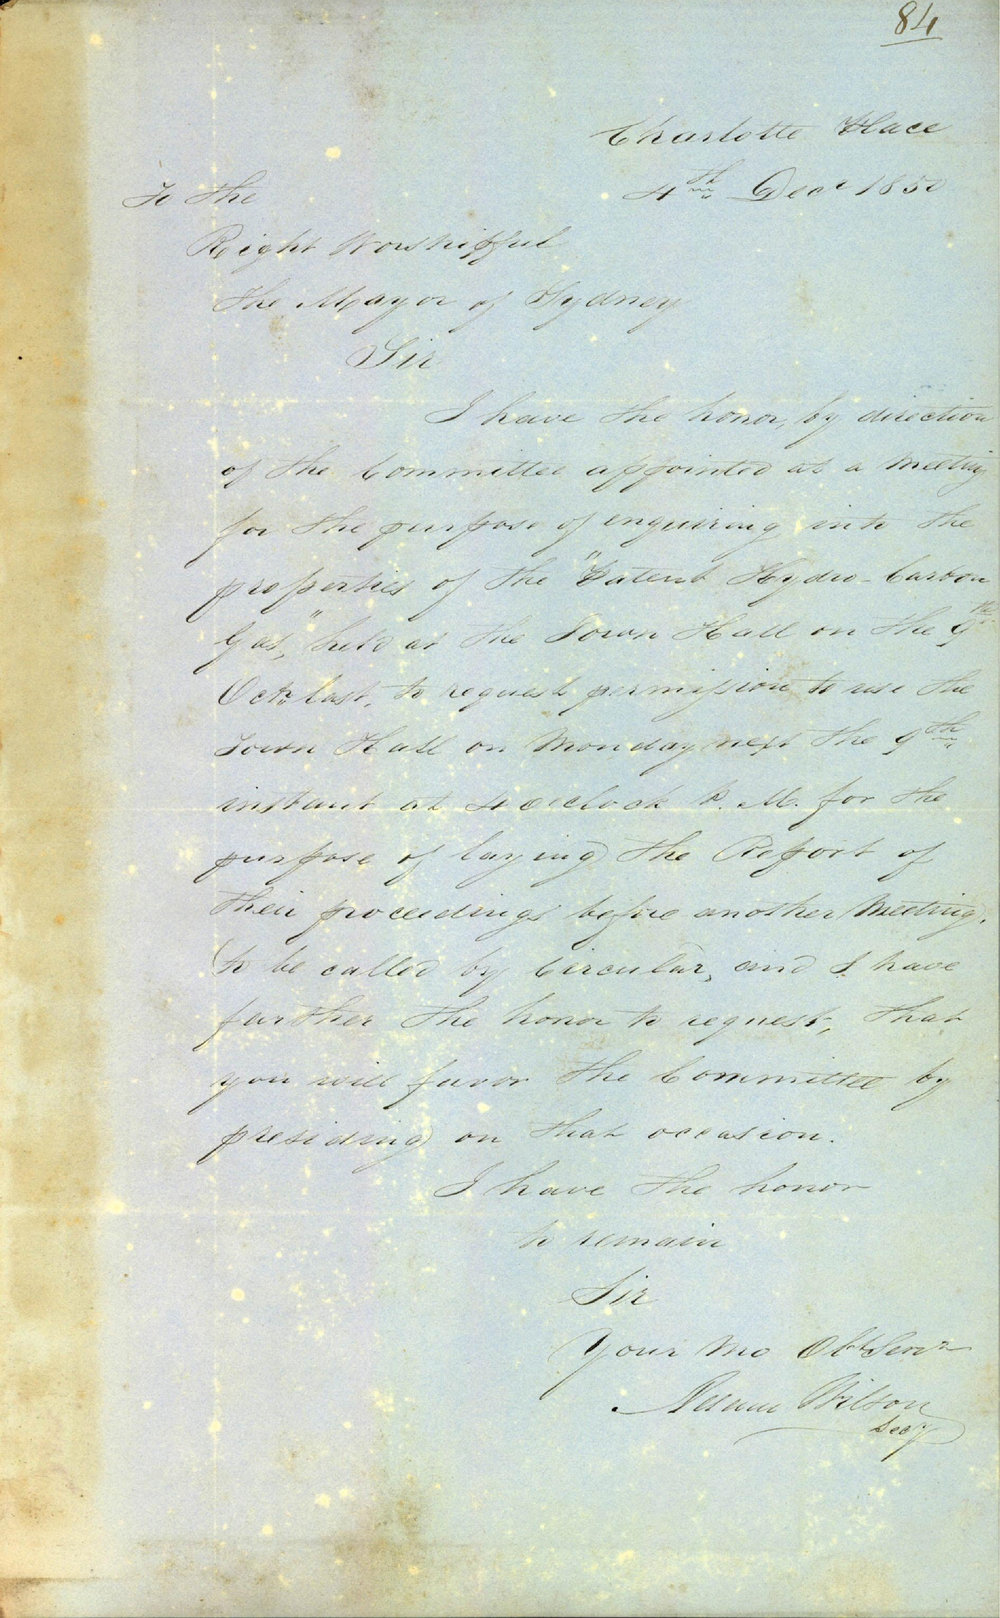 84
Charlotte Place
4th Decr 1850
To the
Right Worshipful
The Mayor of Sydney
Sir
I have the honor, by direction
of the Committee appointed at a Meeting
for the purpose of enquiring into the
properties of the "Patent Hydro-Carbon
Gas," held at the Town Hall on the 9th
Octr last, to request permission to use the
Town Hall on Monday next the 9th
instant at 4 o'clock P.M. for the
purpose of laying the Report of
their proceedings before another Meeting,
to be called by Circular, and I have
further the honor to request, that
you will favor the Committee by
presiding on that occasion.
I have the honor
to remain
Sir
Your Mo Obt Servt
Wilson
Secy